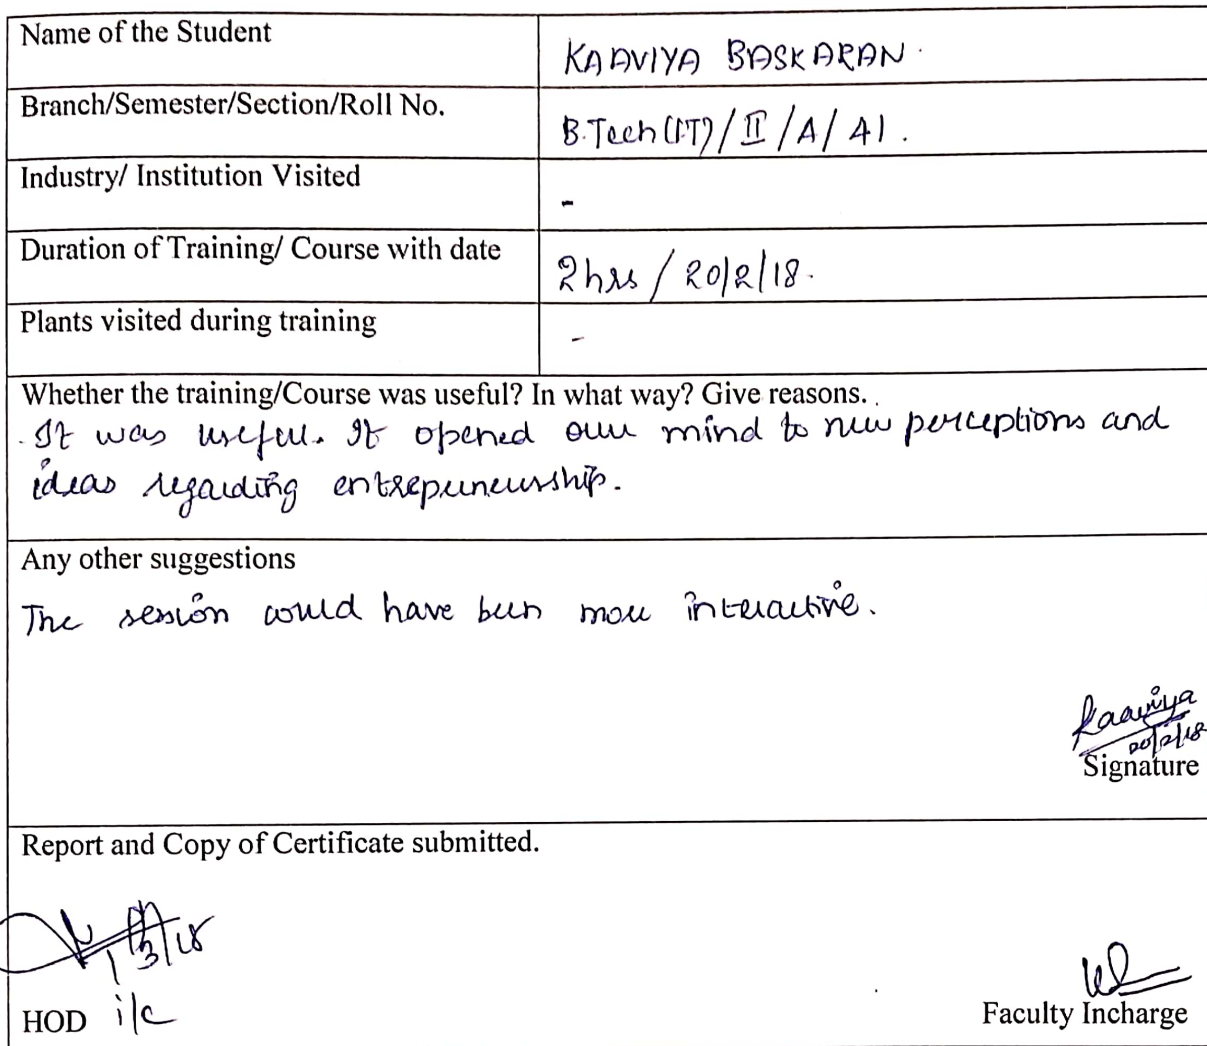 Name of the Student
KAAVIYA BASKARAN.
Branch/Semester/Section/Roll No.
B.Tech (IT) / II / A / 41.
Industry/ Institution Visited
-
Duration of Training/ Course with date
2hrs / 20/2/18.
Plants visited during training
-
Whether the training/Course was useful? In what way? Give reasons.
It was useful. It opened our mind to new perceptions and
ideas regarding entrepreneurship.
Any other suggestions
The session could have been more interactive.
Kaaviya
20/2/18
Signature
Report and Copy of Certificate submitted.
HOD i/c
Faculty Incharge